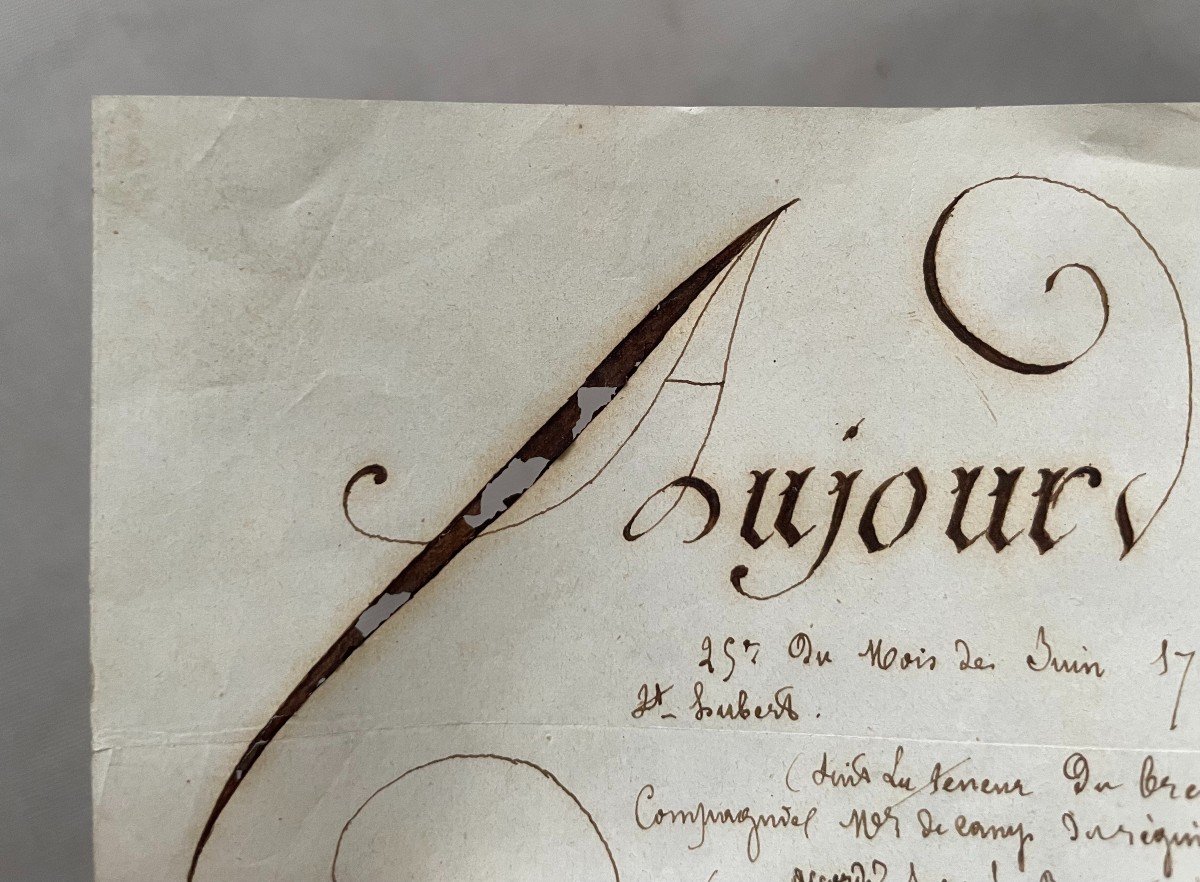 Aujour
25e Du Mois de Juin 17
St. hubert.
Suit La teneur Du bre
Compagnies Mes de camp Du régim